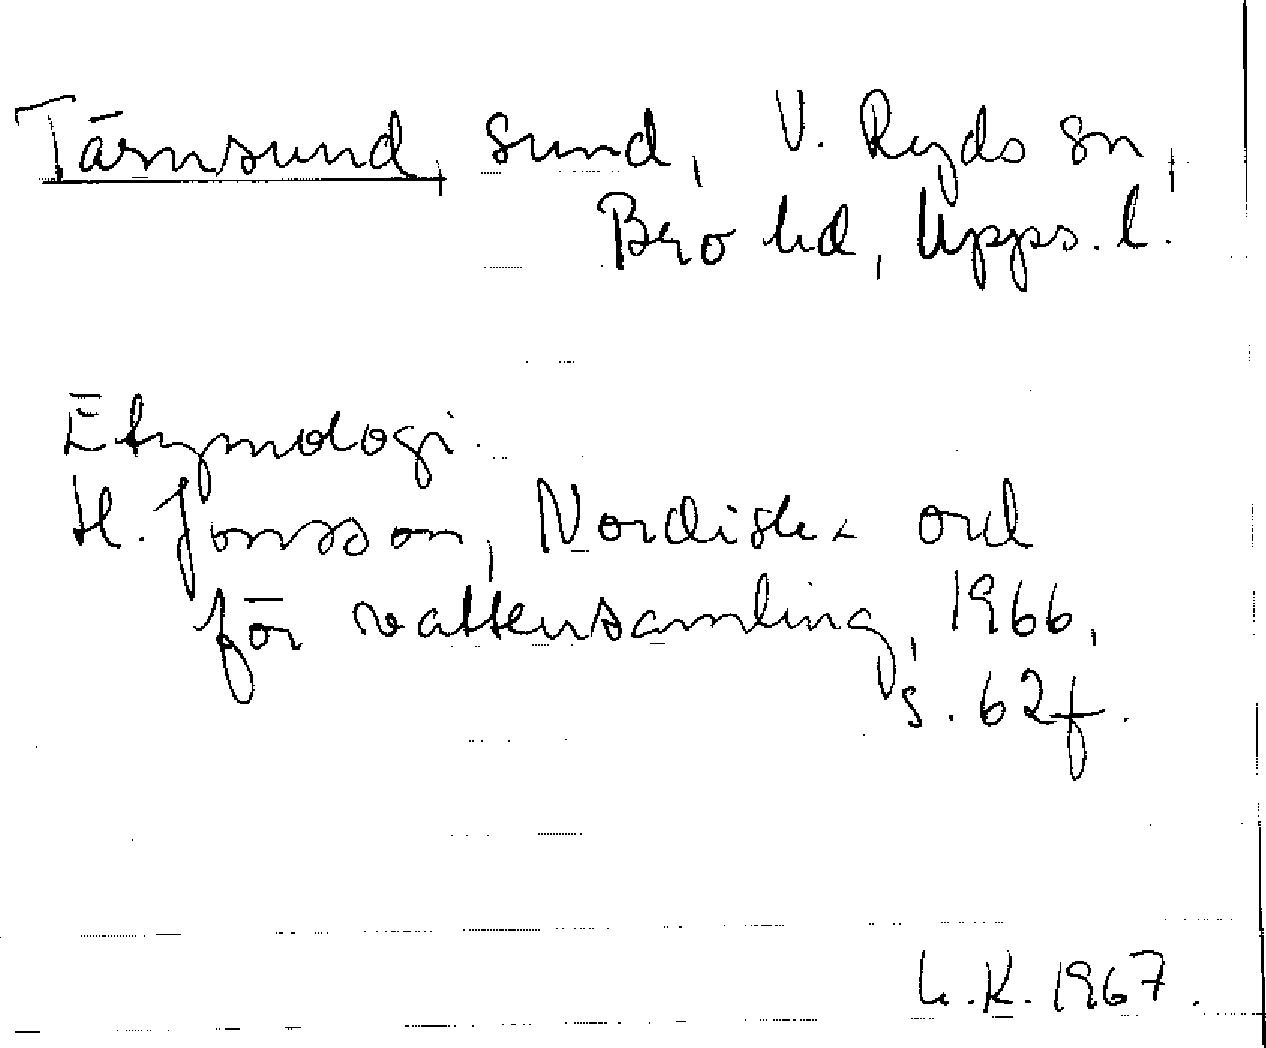 Tärnsund, sund, V. Ryds sn,
Bro hd, Upps. l.
Etymologi.
H. Jonsson, Nordiska ord
för vattensamling, 1966,
s. 62f.
L.K. 1967.